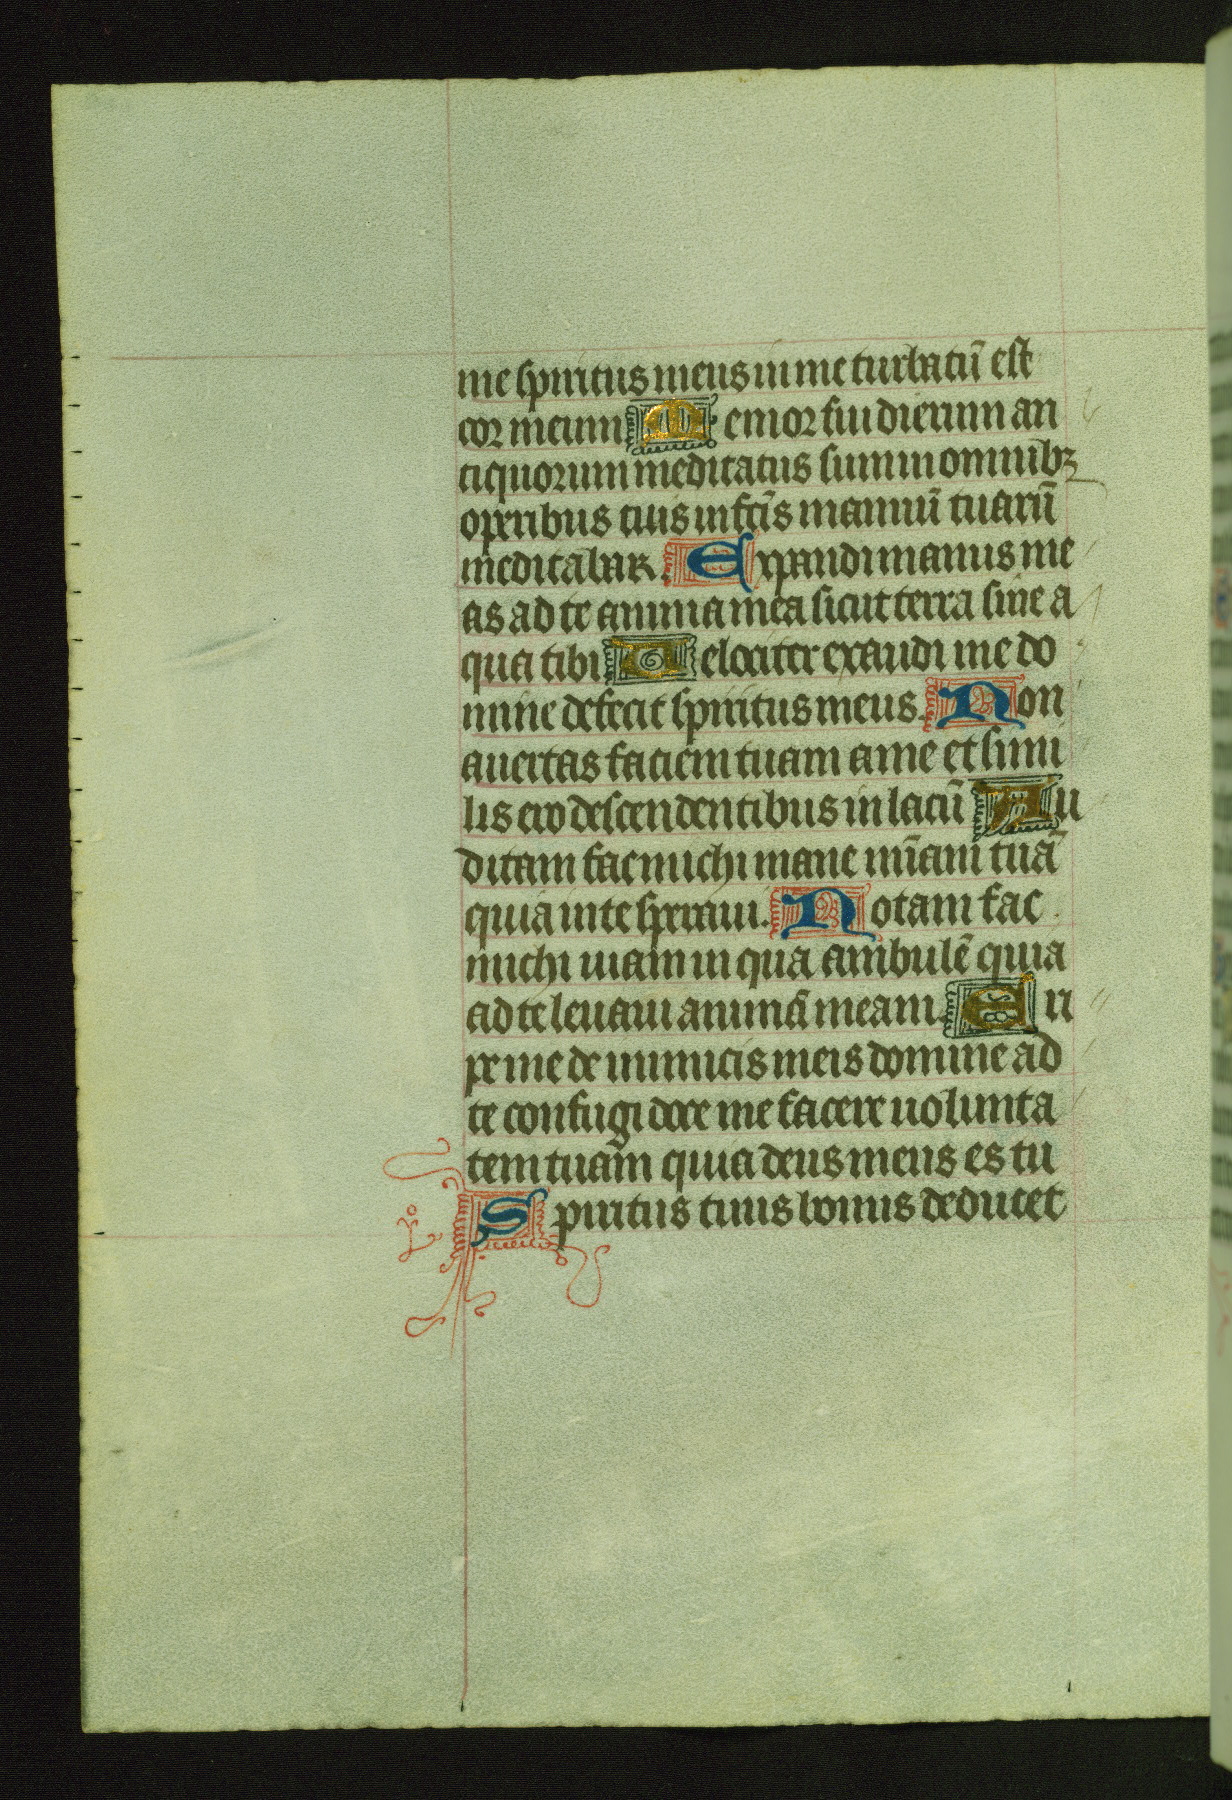 me spiritus meus in me turbatū est
cor meum Memor fui dierum an
tiquorum meditatus sum in omnibꝫ
operibus tuis in fc̄is manuū tuarū
meditabar. Expandi manus me
as ad te anima mea sicut terra sine a
qua tibi Uelociter exaudi me do
mine defecit spiritus meus. Non
auertas faciem tuam a me et simi
lis ero descendentibus in lacū Au
ditam fac michi mane mīam tuā
quia in te speraui. Notam fac
michi uiam in qua ambulē quia
ad te leuaui animā meam. Eri
pe me de inimicis meis domine ad
te confugi doce me facere uolunta
tem tuam quia deus meus es tu
Spiritus tuus bonus deducet